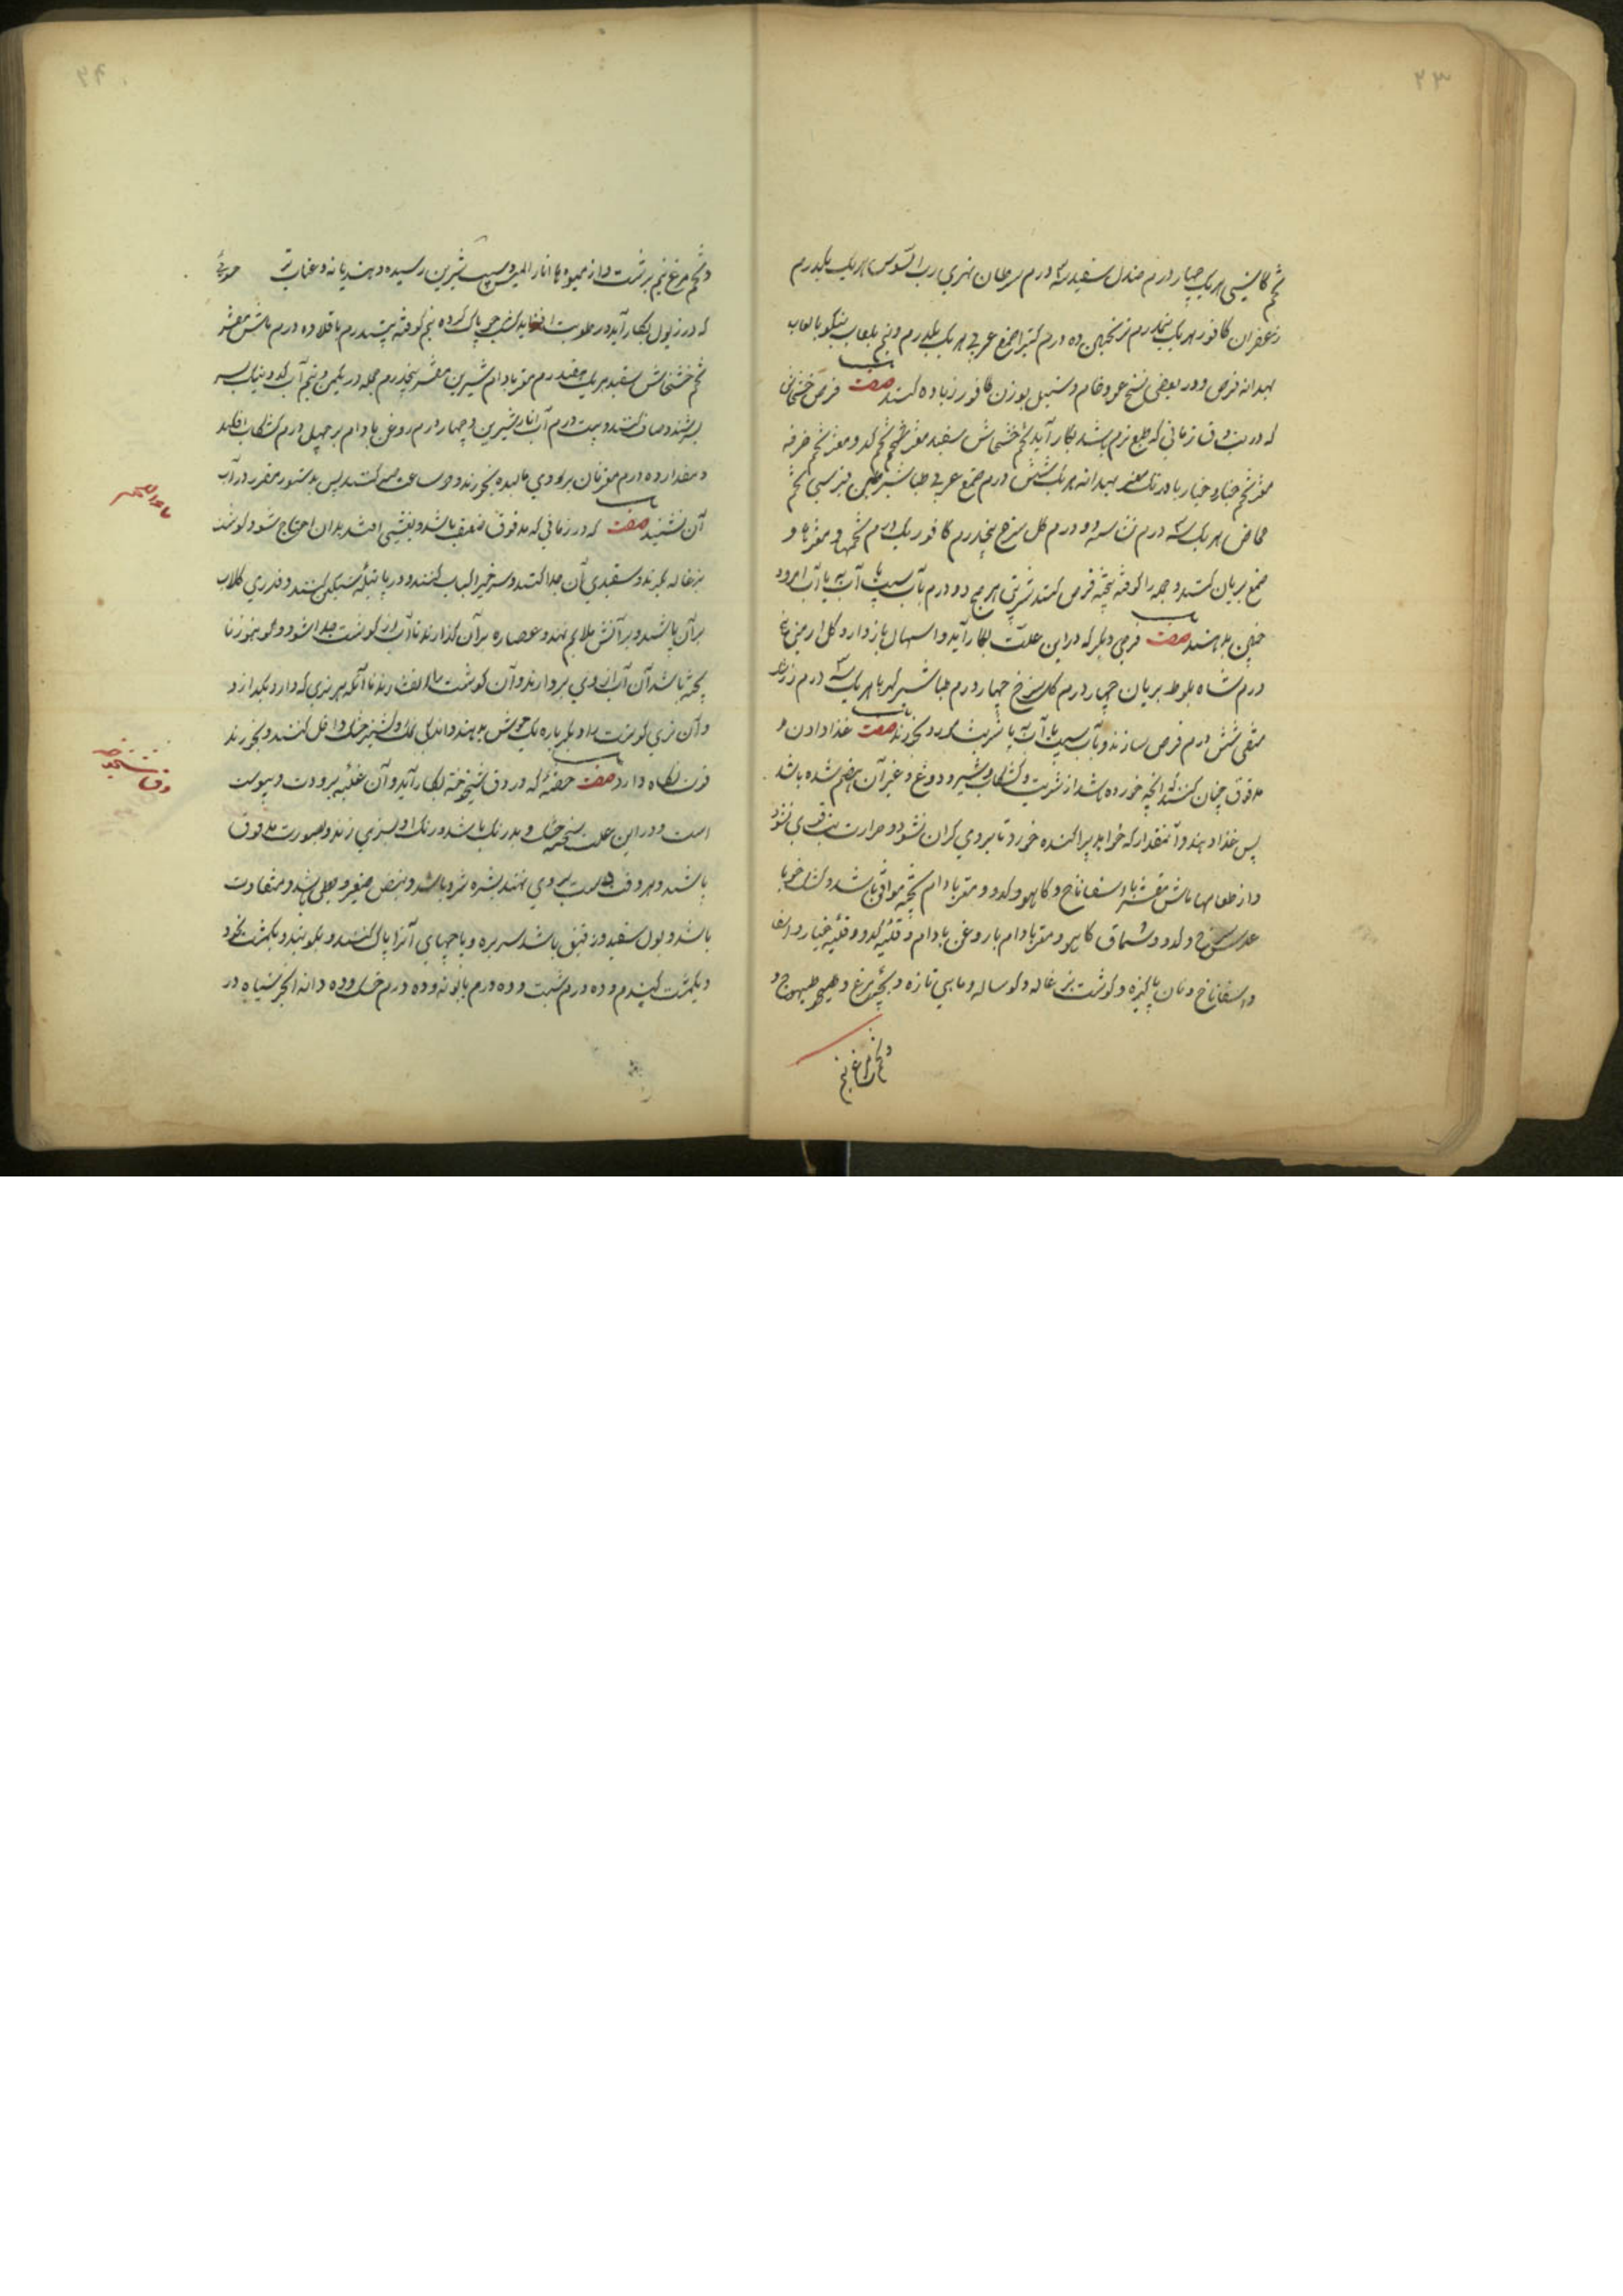 ۲۳
تخم کاسنی هر یک چهار درم صندل سفید سه درم سرطان نهری رب السوس هر یک یکدرم
زعفران کافور هر یک نیمدرم ترنجبین ده درم کتیرا صمغ عربی هر یک یکدرم و نیم بلعاب بنیکو یا لعاب
بهدانه قرص و در بعضی نسخ عود خام و سنبل بوزن کافور زیاده کنند صفت قرص خشخاش
که در دق زمانی که طبع نرم باشد بکار آید تخم خشخاش سفید مغز تخم کدو مغز تخم خرفه
مغز تخم خیار و خیار بادرنگ مغز بهدانه هر یک شش درم صمغ عربی طباشیر طین قبرسی تخم
حماض هر یک سه درم نشاسته دو درم گل سرخ پنجدرم کافور یک درم تخمها و مغزها و
صمغ بریان کنند و جمله را کوفته بیخته قرص کنند شربتی هر صبح دو درم بآب سیب یا آب به یا آب امرود
چنین بدهند صفت قرصی دیگر که در این علت بکار آید و اسهال باز دارد گل ارمنی
درم شاه بلوط بریان چهار درم گل سرخ چهار درم طباشیر کهربا هر یک سه درم زرشک
منقی شش درم قرص سازند و بآب سیب یا آب به یا شربت مورد بخورند صفت غذا دادن
مدقوق چنان کنند که آنچه خورده باشد از شربت و کشکاب و شیر و دوغ و غیر آن هضم شده باشد
پس غذا دهند و آنمقدار که خواهد پراکنده خورد تا بر وی گران نشود و حرارت بتب قوی نشود
و از طعامها ماش مقشر با اسفاناخ و کاهو و کدو و مغز بادام پخته موافق باشد و کشک جو با
عدس سرخ و کدو و سماق کاهو و مغز بادام با روغن بادام و قلیه کدو و قلیه خیار و اسفا
و اسفاناخ و نان پاکیزه و گوشت بزغاله و گوساله و ماهی تازه و بچه مرغ و طیهوج و
و تخم مرغ نیم
و تخم مرغ نیم برشت و از میوه ها انار املیس و سیب شیرین رسیده و هندیانه و عناب تر حسوئی
که در ذبول بکار آید و رطوبت افزاید کشک جو پاک کرده نیم کوفته بیست درم باقلا ده درم ماش مقشر
تخم خشخاش سفید هر یک هفتدرم مغز بادام شیرین مقشر پنجدرم جمله در یکمن و نیم آب کدو
بپزند و صاف کنند و بیست درم آب انار شیرین و چهار درم روغن بادام بر چهل درم کشکاب افکنند
و مقدار ده درم مغز نان بر وی مالیده بخورند و دو ساعت صبر کنند پس بدستور مقرر در آب
آن نشینند صفت که در زمانی که مدقوق ضعیف باشد و بغشی افتد بدان احتیاج شود گوشت
بزغاله بگیرند و سفیدی آن جدا کنند و سر خیر الباب کنند و در پاتیله سنگین کنند و قدری گلاب
بر آن پاشند و بر آتش ملایم نهند و عصاره بر آن گذارند تا آب از گوشت جدا شود و هنوز نا
پخته باشد آن آب از وی بردارند و آن گوشت را بیفشارند تا آنکه هر نری که دارد بگذارد
و آن تری گوشت را دیگر باره یک جوش بدهند و اندکی نمک و گشنیز خشک داخل کنند و بخورند
قوت نگاه دارد صفت حقنه که در دق شیخوخه بکار آید و آن غلبه برودت و یبوست
است و در این علت سحنه خشک و بدرنگ باشد و رنگ او بسبزی زند و بصورت مدقوق
باشند و هر وقت دست بر وی نهند بشره سرد باشد و نبض صغیر و بطی باشد و متفاوت
باشد و بول سفید و رقیق باشد سر بره و پاچهای آنرا پاک کنند و بکوبند و یکمشت نخود
و یکمشت گندم و ده درم شبت و ده درم بابونه و ده درم خسک و ده دانه انجیر سیاه در
ماء اللحم
دق شیخوخه